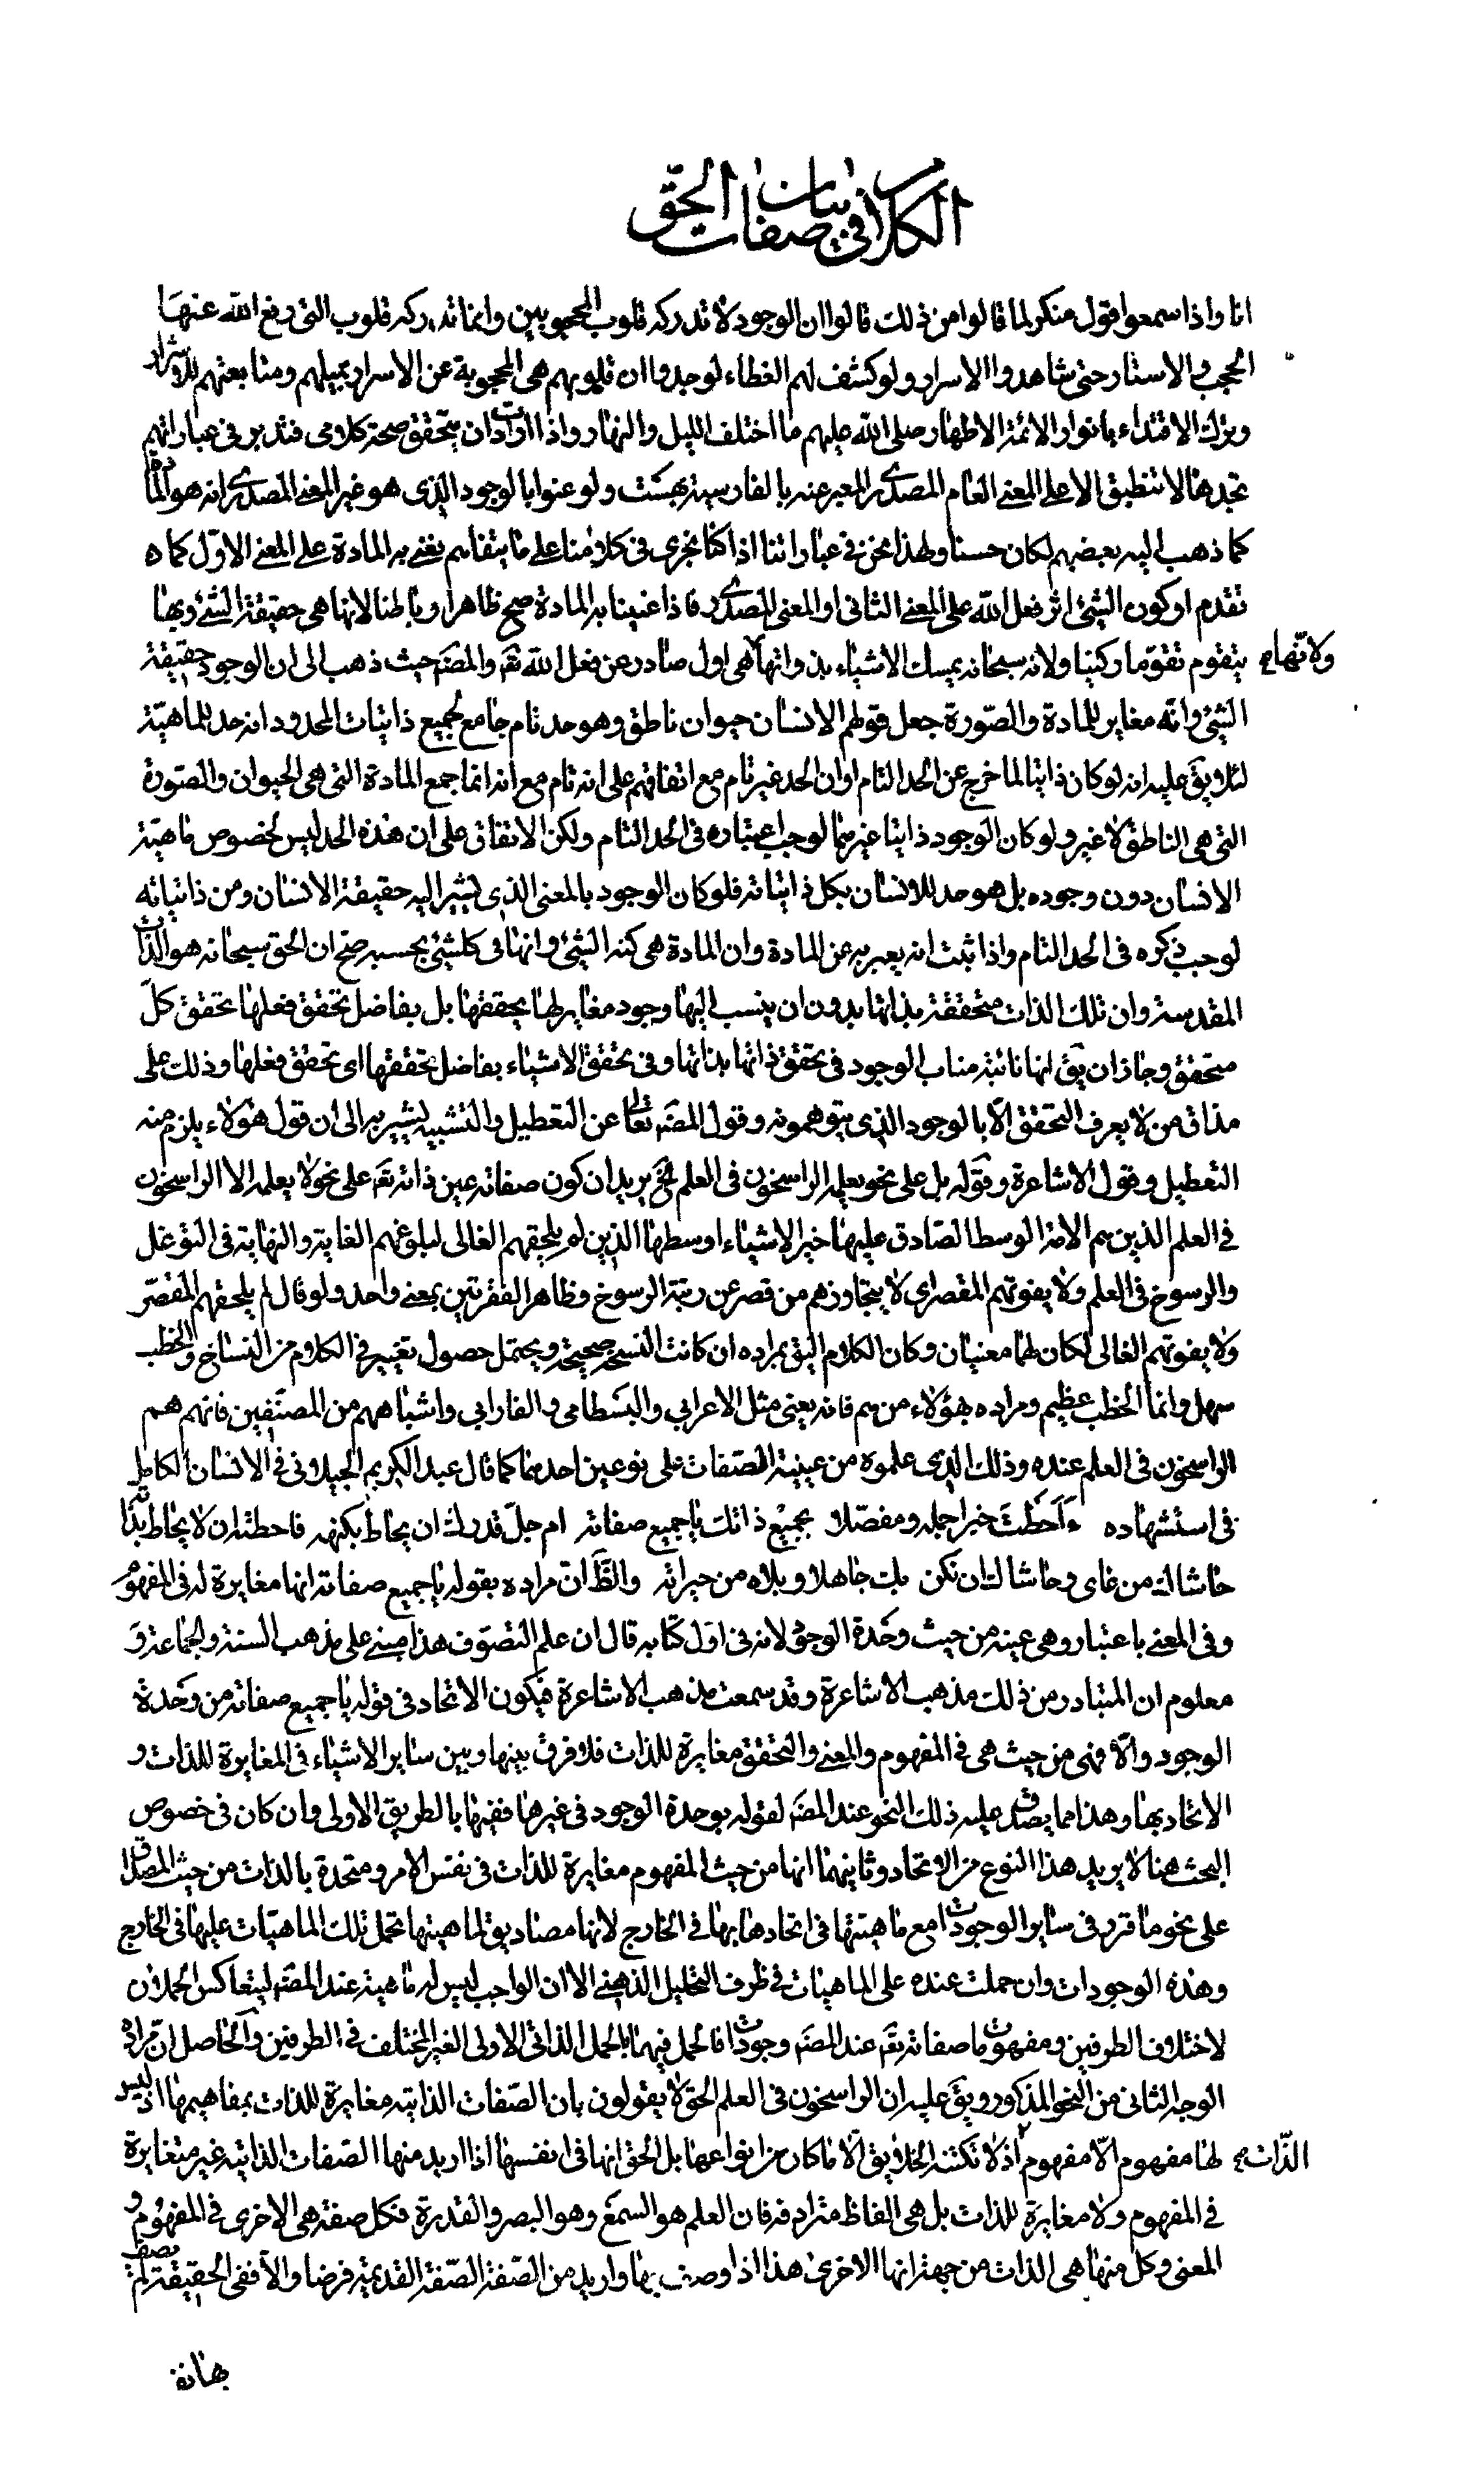 الكلام في بيان صفات الحق
انا واذا سمعوا قول منكر لما قالوا من ذلك قالوا ان الوجود لا تدركه قلوب المحجوبين وانما تدركه قلوب التى رفع الله عنها
الحجب والاستار حتى شاهدوا الاسرار ولو كشف لهم الغطاء لوجدوا ان قلوبهم هى المحجوبة عن الاسرار بميلهم ومتابعتهم للاشرار
وترك الاقتداء بانوار الائمة الاطهار صلى الله عليهم ما اختلف الليل والنهار واذا اردت ان يتحقق صحة كلامى فتدبر فى عباراتهم
تجدها لا تنطبق الا على المعنى العام المصدرى المعبر عنه بالفارسية بهست ولو عنوا بالوجود الذى هو غير المعنى المصدرى انه هو المادة
كما ذهب اليه بعضهم لكان حسنا ولهذا نحن فى عباراتنا اذا كنا نجرى فى كلامنا على ما يتفاهم نعنى به المادة على المعنى الاول كما
تقدم او كون الشئ اثر فعل الله على المعنى الثانى او المعنى المصدرى فاذا عنينا به المادة صح ظاهرا وباطنا لانها هى حقيقة الشئ وبها
يتقوم تقوما ركنيا ولانه سبحانه يمسك الاشياء بذواتها ولانها هى اول صادر عن فعل الله تع والمصنف حيث ذهب الى ان الوجود حقيقة
الشئ وانه مغاير للمادة والصورة جعل قولهم الانسان حيوان ناطق وهو حد تام جامع لجميع ذاتيات المحدود انه حد للماهية
لئلا يق عليه انه لو كان ذاتيا لما خرج عن الحد التام او ان الحد غير تام مع اتفاقهم على انه تام مع انه انما جمع المادة التى هى الحيوان والصورة
التى هى الناطق لا غير ولو كان الوجود ذاتيا غيرهما لوجب اعتباره فى الحد التام ولكن الاتفاق على ان هذه الحد ليس لخصوص ماهية
الانسان دون وجوده بل هو حد للانسان بكل ذاتياته فلو كان الوجود بالمعنى الذى يشير اليه حقيقة الانسان ومن ذاتياته
لوجب ذكره فى الحد التام واذا ثبت انه يعبر به عن المادة وان المادة هى كنه الشئ وانها فى كلشئ بحسبه صح ان الحق سبحانه هو الذات
المقدسة وان تلك الذات متحققة بذاتها بدون ان ينسب اليها وجود مغاير لها يحققها بل بفاضل تحقق فعلها تحقق كل
متحقق وجاز ان يق انها نائبة مناب الوجود فى تحقق ذاتها بذاتها وفى تحقق الاشياء بفاضل تحققها اى تحقق فعلها وذلك على
مذاق من لا يعرف التحقق الا بالوجود الذى يتوهمونه وقول المصنف تعالى عن التعطيل والتشبيه يشير به الى ان قول هؤلاء يلزم منه
التعطيل وقول الاشاعرة وقوله بل على نحو يعلمه الراسخون فى العلم الخ يريد ان كون صفاته عين ذاته تع على نحو لا يعلمه الا الراسخون
فى العلم الذين هم الامة الوسط الصادق عليها خير الاشياء اوسطها الذين لم يلحقهم الغالى لبلوغهم الغاية والنهاية فى التوغل
والرسوخ فى العلم ولا يفوتهم المقصر اى لا يتجاوزهم من قصر عن رتبة الرسوخ وظاهر الفقرتين بمعنى واحد ولو قال لم يلحقهم المقصر
ولا يفوتهم الغالى لكان لهما معنيان وكان الكلام اليق بمراده ان كانت النسخة صحيحة ويحتمل حصول تغيير فى الكلام من النساخ والخطب
سهل وانما الخطب عظيم ومراده بهؤلاء من هم فانه يعنى مثل الاعرابي والبسطامى والفارابي واشباههم من المصنفين فانهم هم
الراسخون فى العلم عنده وذلك الذى علموه من عينية الصفات على نوعين احدهما كما قال عبد الكريم الجيلانى فى الانسان الكامل
فى استشهاده ءاحطت خبرا مجملا ومفصلا بجميع ذاتك يا جميع صفاته ام جل قدرك ان يحاط بكنهه فاحطته ان لا يحاط بذاته
حاشاك من غاى وحاشا لك ان تكن بك جاهلا ويلاه من حيراته والظ ان مراده بقوله يا جميع صفاته انها مغايرة له فى المفهوم
وفى المعنى باعتبار وهى عينه من حيث وحدة الوجود لانه فى اول كتابه قال ان علم التصوف هذا مبنى على مذهب السنة والجماعة و
معلوم ان المتبادر من ذلك مذهب الاشاعرة وقد سمعت مذهب الاشاعرة فيكون الاتحاد فى قوله يا جميع صفاته من وحدة
الوجود والا فهى من حيث هى فى المفهوم والمعنى والتحقق مغايرة للذات فلا فرق بينها وبين ساير الاشياء فى المغايرة للذات و
الاتحاد بها وهذا مما يصدق عليه ذلك النحو عند المصنف لقوله بوحدة الوجود فى غيرها ففيها بالطريق الاولى وان كان فى خصوص
البحث هنا لا يريد هذا النوع من الاتحاد وثانيهما انها من حيث المفهوم مغايرة للذات فى نفس الامر ومتحدة بالذات من حيث المصداق
على نحو ما قرر فى ساير الوجودات مع ماهيتها فى اتحادها بها فى الخارج لانها مصاديق لماهيتها تحمل تلك الماهيات عليها فى الخارج
وهذه الوجودات وان حملت عنده على الماهيات فى ظرف التحليل الذهنى الا ان الواجب ليس له ماهية عند المصنف ليتعاكس الحملان
لاختلاف الطرفين ومفهومات صفاته تع عند المصنف وجودات فالحمل فيهما بالحمل الذاتى الاولى الغير المختلف فى الطرفين والحاصل ان مراده
الوجه الثانى من النحو المذكور ويق عليه ان الراسخون فى العلم الحق لا يقولون بان الصفات الذاتية مغايرة للذات بمفاهيمها اذ ليس
لها مفهوم الا مفهوم الذات اذ لا تكتنه الخلايق الا ما كان من انواعها بل الحق انها فى انفسها اذا اريد منها الصفات الذاتية غير متغايرة
فى المفهوم ولا مغايرة للذات بل هى الفاظ مترادفة فان العلم هو السمع وهو البصر والقدرة فكل صفة هى الاخرى فى المفهوم و
المعنى وكل منها هى الذات من جهة انها الاخرى هذا اذا وصف بها واريد من الصفة الصفة القديمة فرضا والا ففى الحقيقة لم يصف